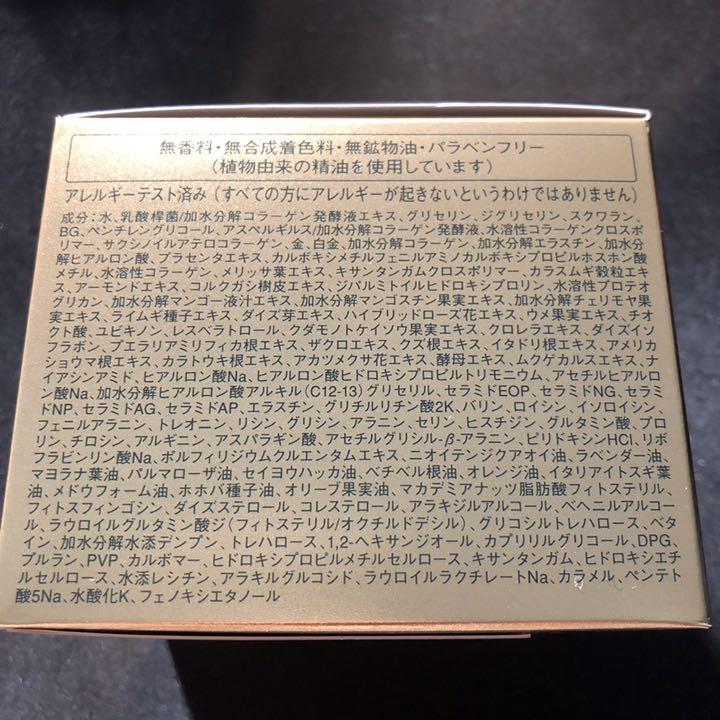 無香料・無合成着色料・無鉱物油・パラベンフリー
(植物由来の精油を使用しています)
アレルギーテスト済み(すべての方にアレルギーが起きないというわけではありません)
成分:水、乳酸桿菌/加水分解コラーゲン発酵液エキス、グリセリン、ジグリセリン、スクワラン、
BG、ペンチレングリコール、アスペルギルス/加水分解コラーゲン発酵液、水溶性コラーゲンクロスポ
リマー、サクシノイルアテロコラーゲン、金、白金、加水分解コラーゲン、加水分解エラスチン、加水分
解ヒアルロン酸、プラセンタエキス、カルボキシメチルフェニルアミノカルボキシプロピルホスホン酸
メチル、水溶性コラーゲン、メリッサ葉エキス、キサンタンガムクロスポリマー、カラスムギ穀粒エキ
ス、アーモンドエキス、コルクガシ樹皮エキス、ジパルミトイルヒドロキシプロリン、水溶性プロテオ
グリカン、加水分解マンゴー液汁エキス、加水分解マンゴスチン果実エキス、加水分解チェリモヤ果
実エキス、ライムギ種子エキス、ダイズ芽エキス、ハイブリッドローズ花エキス、ウメ果実エキス、チオ
クト酸、ユビキノン、レスベラトロール、クダモノトケイソウ果実エキス、クロレラエキス、ダイズイソ
フラボン、プエラリアミリフィカ根エキス、ザクロエキス、クズ根エキス、イタドリ根エキス、アメリカ
ショウマ根エキス、カラトウキ根エキス、アカツメクサ花エキス、酵母エキス、ムクゲカルスエキス、ナ
イアシンアミド、ヒアルロン酸Na、ヒアルロン酸ヒドロキシプロピルトリモニウム、アセチルヒアルロ
ン酸Na、加水分解ヒアルロン酸アルキル(C12-13)グリセリル、セラミドEOP、セラミドNG、セラミ
ドNP、セラミドAG、セラミドAP、エラスチン、グリチルリチン酸2K、バリン、ロイシン、イソロイシン、
フェニルアラニン、トレオニン、リシン、グリシン、アラニン、セリン、ヒスチジン、グルタミン酸、プロ
リン、チロシン、アルギニン、アスパラギン酸、アセチルグリシル-β-アラニン、ピリドキシンHCl、リボ
フラビンリン酸Na、ポルフィリジウムクルエンタムエキス、ニオイテンジクアオイ油、ラベンダー油、
マヨラナ葉油、パルマローザ油、セイヨウハッカ油、ベチベル根油、オレンジ油、イタリアイトスギ葉
油、メドウフォーム油、ホホバ種子油、オリーブ果実油、マカデミアナッツ脂肪酸フィトステリル、
フィトスフィンゴシン、ダイズステロール、コレステロール、アラキジルアルコール、ベヘニルアルコー
ル、ラウロイルグルタミン酸ジ(フィトステリル/オクチルドデシル)、グリコシルトレハロース、ベタ
イン、加水分解水添デンプン、トレハロース、1,2-ヘキサンジオール、カプリリルグリコール、DPG、
プルラン、PVP、カルボマー、ヒドロキシプロピルメチルセルロース、キサンタンガム、ヒドロキシエチ
ルセルロース、水添レシチン、アラキルグルコシド、ラウロイルラクチレートNa、カラメル、ペンテト
酸5Na、水酸化K、フェノキシエタノール